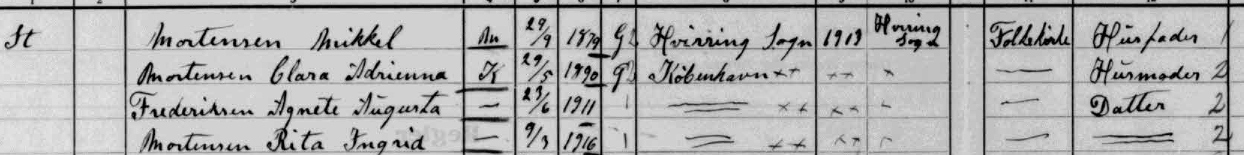 St Mortensen Mikkel M 29/9 1879 G Hvirring Sogn 1919 Hvirring Sogn Folkekirke Husfader 1
Mortensen Clara Adrienna K 29/5 1890 G København ×× ×× × — Husmoder 2
Frederiksen Agnete Augusta — 23/6 1911 1 — ×× ×× — Datter 2
Mortensen Rita Ingrid — 9/3 1916 1 — ×× ×× × — — 2